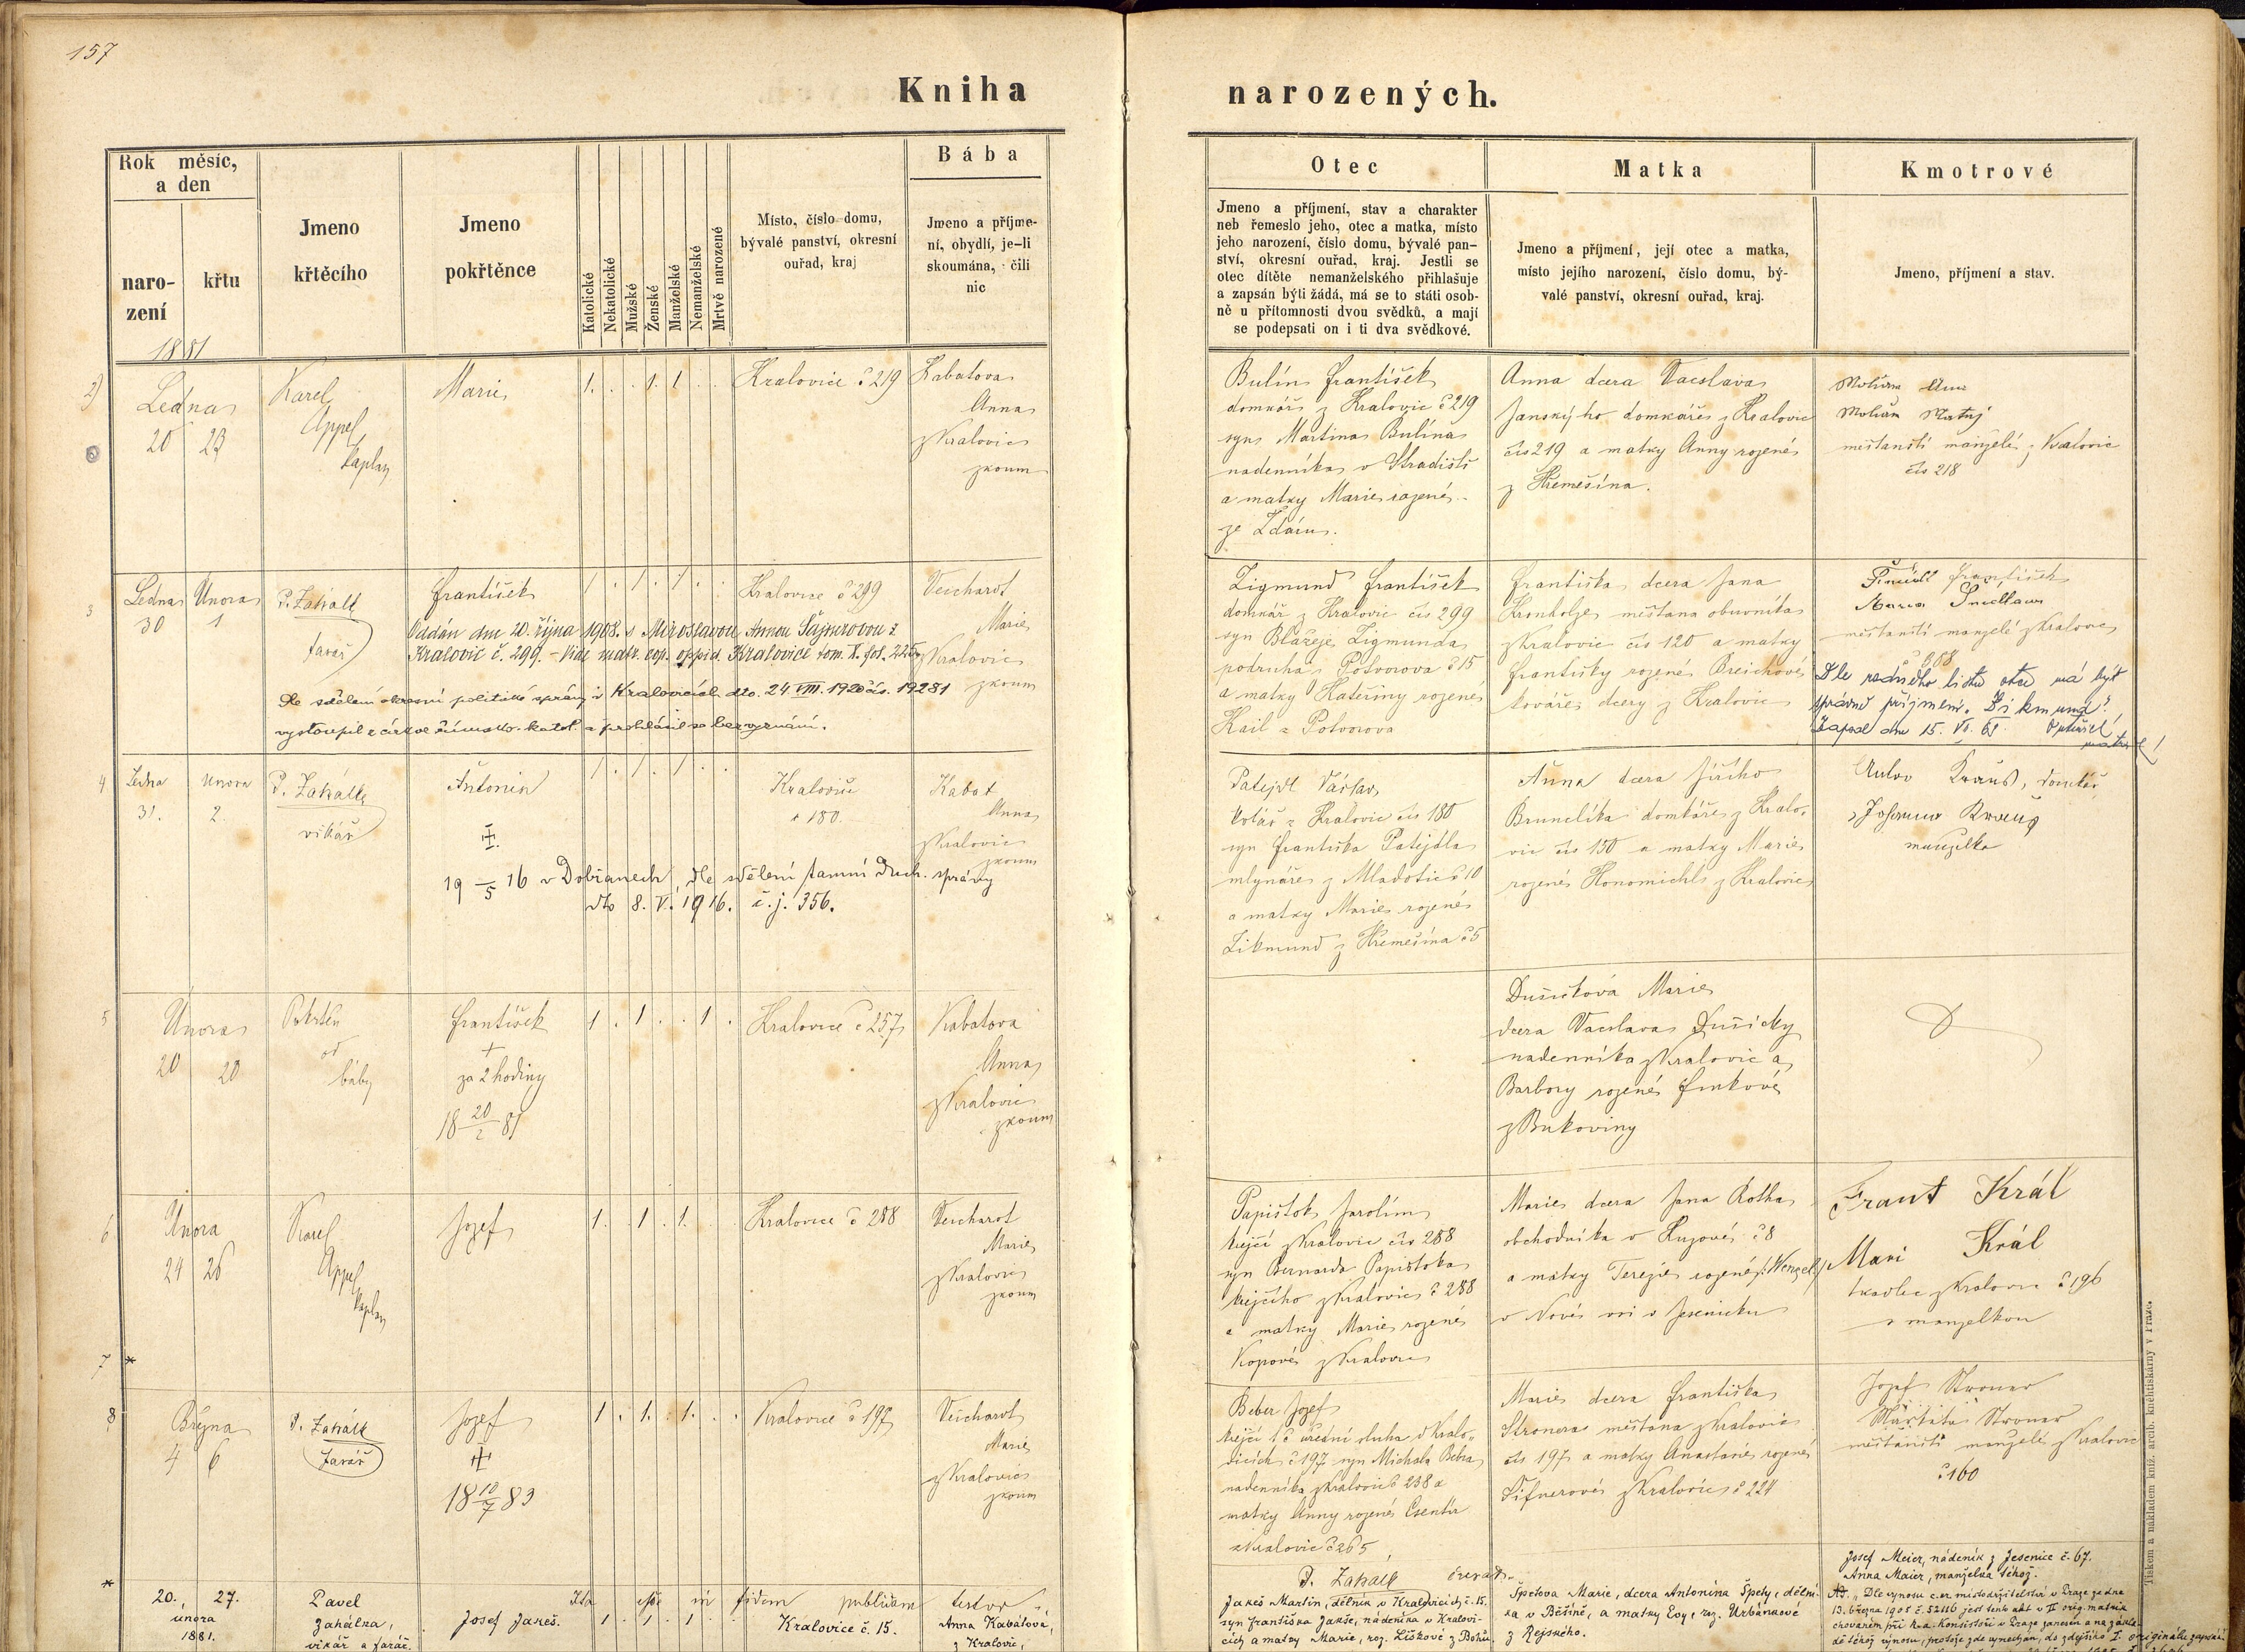 157
Kniha narozených.
Rok měsíc,
a den
naro-
zení
křtu
1881
Jmeno
křtěcího
Jmeno
pokřtěnce
Katolické
Nekatolické
Mužské
Ženské
Manželské
Nemanželské
Mrtvě narozené
Místo, číslo domu,
bývalé panství, okresní
ouřad, kraj
Bába
Jmeno a příjme-
ní, obydlí, je-li
skoumána, čili
nic
Otec
Jmeno a příjmení, stav a charakter
neb řemeslo jeho, otec a matka, místo
jeho narození, číslo domu, bývalé pan-
ství, okresní ouřad, kraj. Jestli se
otec dítěte nemanželského přihlašuje
a zapsán býti žádá, má se to státi osob-
ně u přítomnosti dvou svědků, a mají
se podepsati on i ti dva svědkové.
Matka
Jmeno a příjmení, její otec a matka,
místo jejího narození, číslo domu, bý-
valé panství, okresní ouřad, kraj.
Kmotrové
Jmeno, příjmení a stav.
2)
Ledna
20 23
Karel
Appel
kaplan
Marie
1. . . 1. 1 . .
Kralovice č 219
Kabatova
Anna
z Kralovic
zkoum
Bulín František
domkář z Kralovic č 219
syn Martina Bulína
nadenníka v Hradišti
a matky Marie rozené
ze Ždáru.
Anna dcera Vacslava
Janskýho domkáře z Kralovic
čis 219 a matky Anny rozené
z Hřemešína.
měštanští manželé z Kralovic
čís 218
3
Ledna Února
30 1
P. Zahálk
farář
František
1 . 1 . 1 . .
Kralovice č 299
Veichart
Marie
z Kralovic
zkoum
Oddán dne 20. října 1908. s Miroslavou Annou Šajnerovou z
Kralovic č. 299. - Vide matr. cop. oppid. Kralovice tom. X. fol. 225.
Dle sdělení okresní politické správy v Kralovicích dto. 24. VIII. 1920 čís. 19281
vystoupil z církve římsko-katol. a prohlásil se bez vyznání.
Zigmund František
domkář z Kralovic čis 299
syn Blažeje Zigmunda
podruha z Potvorova č 15
a matky Kateřiny rozené
Kail z Potvorova
Františka dcera Jana
Kronholze měštana obuvníka
z Kralovic čis 120 a matky
Františky rozené Breichové
kováře dcery z Kralovic
František
Marie
měštanští manželé z Kralovic
Dle rodného listu otce má být
správně příjmení "Zikmund".
Zapsal dne 15. VI. 61.
4
Ledna Února
31. 2.
P. Zahálk
vikář
Antonin
1 . 1 . 1 . .
Kralovice
č 180.
Kabat
Anna
z Kralovic
zkoum
19 5/ 16 v Dobřanech, dle sdělení tamní duch. správy
dto 8. V. 1916. č. j. 356.
Patejdl Václav
kolář z Kralovic čis 180
syn Františka Patejdla
mlynáře z Mladotic č 10
a matky Marie rozené
Zikmund z Hřemešína č 5
Anna dcera Jiřího
Brunclíka domkáře z Kralo-
vic čis 150 a matky Marie
rozené Honomichl z Kralovic
Anton Kraus, domkář
Johanna Kraus
manželka
5
Února
20 20
Pokřtěn
od
báby
František
+
za 2 hodiny
18 20/2 81
1 . 1 . . 1 .
Kralovice č 257
Kabatova
Anna
z Kralovic
zkoum
Dušičková Marie
dcera Vaclava Dušičky
nadenníka z Kralovic a
Barbory rozené Finkové
z Bukoviny
6
Února
24 26
Karel
Appel
kaplan
Jozef
1. 1 . 1. .
Kralovice č 288
Veichart
Marie
z Kralovic
zkoum
Papištok Jarolím
krejčí z Kralovic čis 288
syn Bernarda Papištoka
krejčího z Kralovic č 288
a matky Marie rozené
Kopové z Kralovic
Marie dcera Jana Rotha
obchodníka v č 8
a matky Terezie rozené /:Wenzel:/
v Nové vsi v Jesenicku
Frant Král
Mari Král
tkadlec z Kralovic č 196
s manželkou
7 *
8
Března
4 6
P. Zahálk
farář
Jozef
+
18 10/7 83
1 . 1. . 1. . .
Kralovice č 197
Veichart
Marie
z Kralovic
zkoum
Beber Jozef
krejčí t č úřední sluha v Kralo-
vicích č 197 syn Michala Bebra
nadenníka z Kralovic č 238 a
matky Anny rozené Esentir
z Kralovic č 265
Marie dcera Františka
Stronera měštana z Kralovic
čis 197 a matky Anastasie rozené
Šifnerové z Kralovic č 224
Jozef Stroner
Markéta Stroner
měštanští manželé z Kralovic
č 160
*
20., 27.
února
1881.
Pavel
Zahálka,
vikář a farář.
Josef Jakeš.
Ita esse in fidem publicam testor
P. Zahálk
1 . 1 . 1 . .
Kralovice č. 15.
Anna Kabátová,
z Kralovic,
Jakeš Martin, dělník v Kralovicích č. 15.
syn Františka Jakše, nádeníka v Kralovi-
cích a matky Marie, roz. Liškové z Bohu
Špetova Marie, dcera Antonína Špety, dělní-
ka v Běšíně, a matky Evy, roz. Urbánkové
z Rejského.
Josef Meier, nádeník z Jesenice č. 67.
Anna Maier, manželka téhož.
Ad. Dle výnosu c. kr. místodržitelství v Praze ze dne
13. března 1905 č. 52116 jest tento akt v II orig. matrik
chovaném při k. a. Konsistoři v Praze zanesen a na zákla-
dě téhož výnosu, protože zde vynechán, do zdejšího I. originálu zapsán
Tiskem a nákladem kníž. arcib. knihtiskárny v Praze.